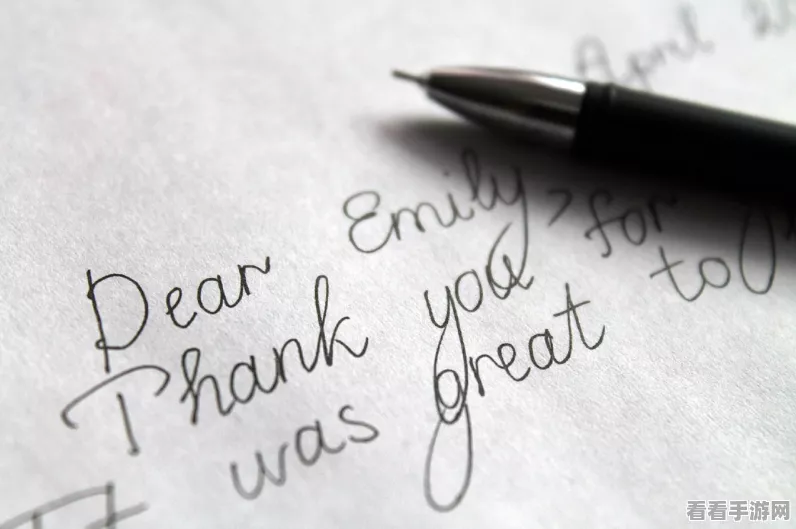 April 2
Dear Emily,
Thank you for
It was great to
看看手游网